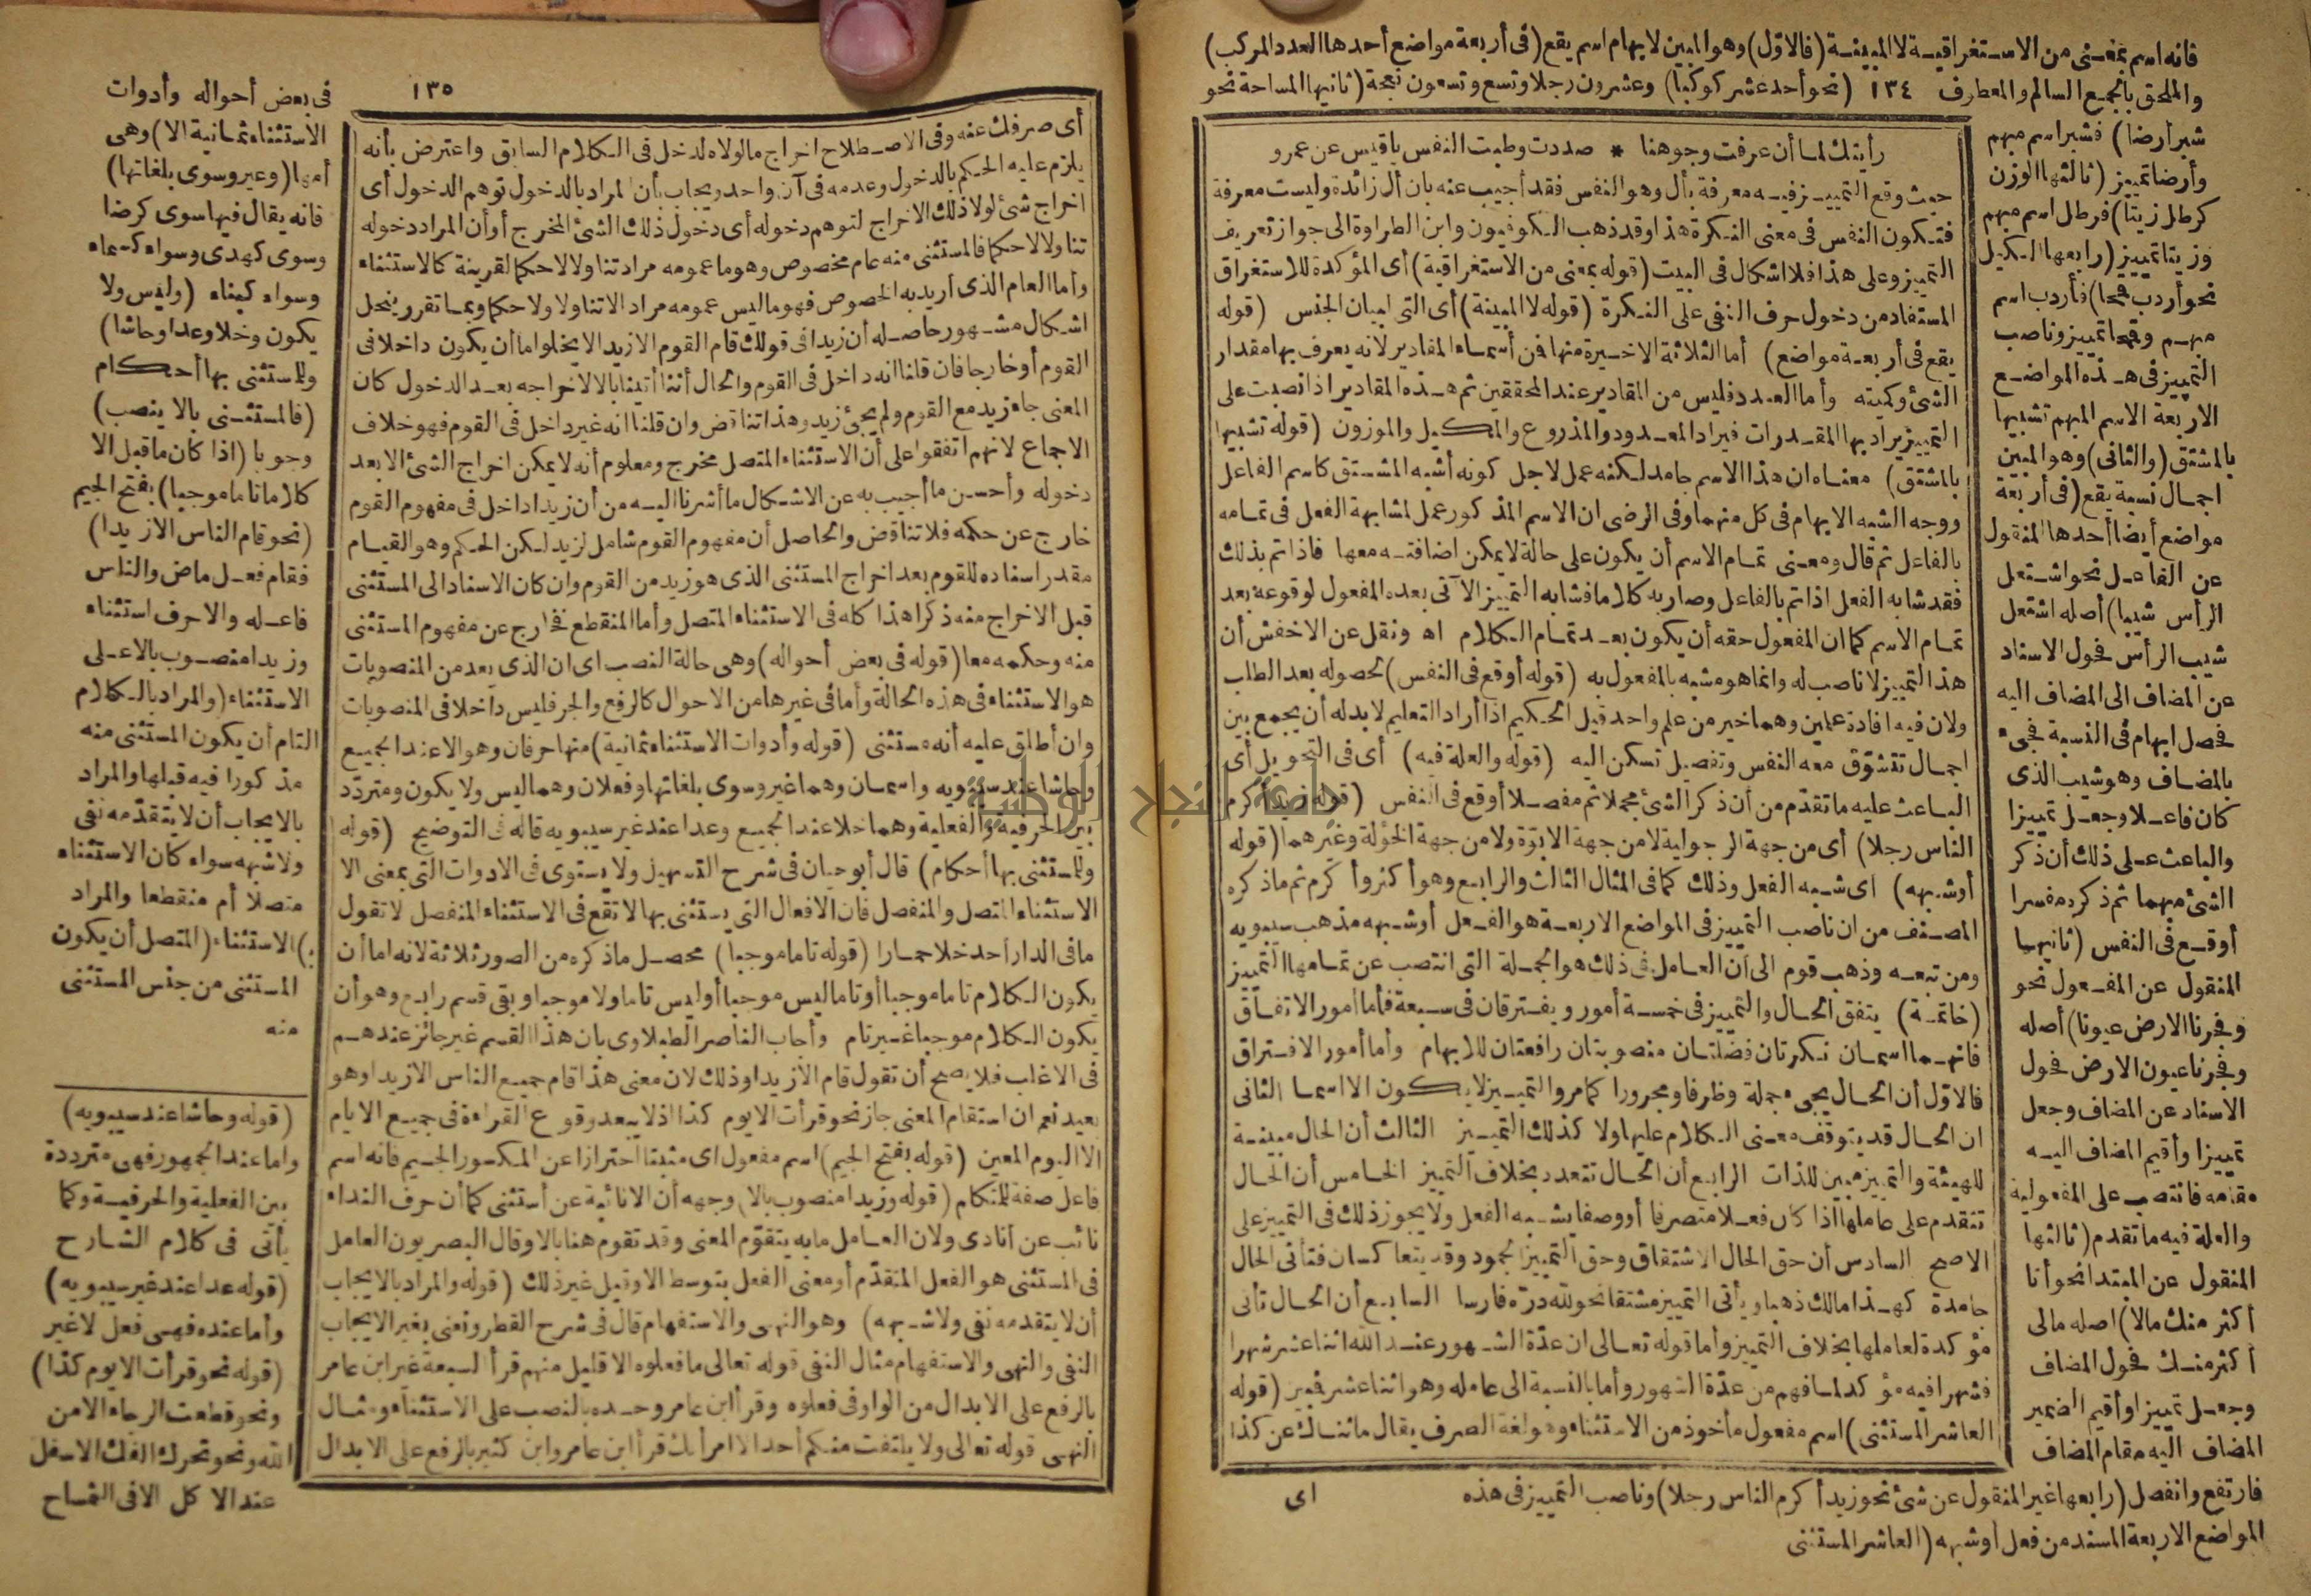 فانه اسم بمعنى من الاستغراقية لا المبينة (فالاول) وهو المبين لابهام اسم يقع (فى أربعة مواضع أحدها العدد المركب)
والملحق بالجمع السالم والمعطوف ١٣٤ (نحو أحد عشر كوكبا) وعشرون رجلا وتسع وتسعون نعجة (ثانيها المساحة نحو
شبر أرضا) فشبر اسم مبهم
وأرضا تمييز (ثالثها الوزن
كرطل زيتا) فرطل اسم مبهم
وزيتا تمييز (رابعها الكيل
نحو أردب قمحا) فأردب اسم
مبهم وقمحا تمييز وناصب
التمييز فى هذه المواضع
الاربعة الاسم المبهم تشبيها
بالمشتق (والثانى) وهو المبين
اجمال نسبة يقع (فى أربعة
مواضع أيضا أحدها المنقول
عن الفاعل نحو اشتعل
الرأس شيبا) أصله اشتعل
شيب الرأس فحول الاسناد
عن المضاف الى المضاف اليه
فحصل ابهام فى النسبة فجىء
بالمضاف وهو شيب الذى
كان فاعلا وجعل تمييزا
والباعث على ذلك أن ذكر
الشئ مبهما ثم ذكره مفسرا
أوقع فى النفس (ثانيها
المنقول عن المفعول نحو
وفجرنا الارض عيونا) أصله
وفجرنا عيون الارض فحول
الاسناد عن المضاف وجعل
تمييزا وأقيم المضاف اليه
مقامه فانتصب على المفعولية
والعلة فيه ما تقدم (ثالثها
المنقول عن المبتدا نحو أنا
أكثر منك مالا) اصله مالى
أكثر منك فحول المضاف
وجعل تمييزا وأقيم الضمير
المضاف اليه مقام المضاف
فارتفع وانفصل (رابعها غير المنقول عن شئ نحو زيد أكرم الناس رجلا) وناصب التمييز فى هذه
المواضع الاربعة المسند من فعل أو شبهه (العاشر المستثنى
رأيتك لما أن عرفت وجوهنا * صددت وطبت النفس ياقيس عن عمرو
حيث وقع التمييز فيه معرفة بأل وهو النفس فقد أجيب عنه بان أل زائدة وليست معرفة
فتكون النفس فى معنى النكرة هذا وقد ذهب الكوفيون وابن الطراوة الى جواز تعريف
التمييز وعلى هذا فلا اشكال فى البيت (قوله بمعنى من الاستغراقية) أى المؤكدة للاستغراق
المستفاد من دخول حرف النفى على النكرة (قوله لا المبينة) أى التى لبيان الجنس (قوله
يقع فى أربعة مواضع) أما الثلاثة الاخيرة منها فمن أسماء المقادير لانه يعرف بها مقدار
الشئ وكميته وأما العدد فليس من المقادير عند المحققين ثم هذه المقادير اذا نصبت على
التمييز يراد بها المقدرات فيراد المعدود والمذروع والمكيل والموزون (قوله تشبيها
بالمشتق) معناه ان هذا الاسم جامد لكنه عمل لاجل كونه أشبه المشتق كاسم الفاعل
ووجه الشبه الابهام فى كل منهما وفى الرضى ان الاسم المذكور عمل لمشابهة الفعل فى تمامه
بالفاعل ثم قال ومعنى تمام الاسم أن يكون على حالة لا يمكن اضافته معها فاذا تم بذلك
فقد شابه الفعل اذا تم بالفاعل وصار به كلاما فشابه التمييز الآتى بعده المفعول لوقوعه بعد
تمام الاسم كما ان المفعول حقه أن يكون بعد تمام الكلام اه ونقل عن الاخفش أن
هذا التمييز لا ناصب له وانما هو مشبه بالمفعول به (قوله أوقع فى النفس) لحصوله بعد الطلب
ولان فيه افادة علمين وهما خير من علم واحد قيل الحكيم اذا أراد التعليم لا بد له أن يجمع بين
اجمال تتشوق معه النفس وتفصيل تسكن اليه (قوله والعلة فيه) أى فى التحويل أى
الباعث عليه ما تقدم من أن ذكر الشئ مجملا ثم مفصلا أوقع فى النفس (قوله زيد أكرم
الناس رجلا) أى من جهة الرجولية لا من جهة الابوة ولا من جهة الخؤلة وغيرهما (قوله
أو شبهه) اى شبه الفعل وذلك كما فى المثال الثالث والرابع وهو أكثر وأكرم ثم ما ذكره
المصنف من ان ناصب التمييز فى المواضع الاربعة هو الفعل أو شبهه مذهب سيبويه
ومن تبعه وذهب قوم الى أن العامل فى ذلك هو الجملة التى انتصب عن تمامها التمييز
(خاتمة) يتفق الحال والتمييز فى خمسة أمور ويفترقان فى سبعة فأما أمور الاتفاق
فانهما اسمان نكرتان فضلتان منصوبتان رافعتان للابهام وأما أمور الافتراق
فالاول أن الحال يجىء جملة وظرفا ومجرورا كما مر والتمييز لا يكون الا اسما الثانى
ان الحال قد يتوقف معنى الكلام عليها ولا كذلك التمييز الثالث أن الحال مبينة
للهيئة والتمييز مبين للذات الرابع أن الحال تتعدد بخلاف التمييز الخامس أن الحال
تتقدم على عاملها اذا كان فعلا متصرفا أو وصفا يشبه الفعل ولا يجوز ذلك فى التمييز على
الاصح السادس أن حق الحال الاشتقاق وحق التمييز الجمود وقد يتعاكسان فتأتى الحال
جامدة كهذا مالك ذهبا ويأتى التمييز مشتقا نحو لله دره فارسا السابع أن الحال تأتى
مؤكدة لعاملها بخلاف التمييز وأما قوله تعالى ان عدة الشهور عند الله اثنا عشر شهرا
فشهرا فيه مؤكد لما فهم من عدة الشهور وأما بالنسبة الى عامله وهو اثنا عشر فمبين (قوله
العاشر المستثنى) اسم مفعول مأخوذ من الاستثناء وهو لغة الصرف يقال ما ثناك عن كذا
اى
١٣٥
أى صرفك عنه وفى الاصطلاح اخراج ما لولاه لدخل فى الكلام السابق واعترض بأنه
يلزم عليه الحكم بالدخول وعدمه فى آن واحد ويجاب بأن المراد بالدخول توهم الدخول أى
اخراج شئ لولا ذلك الاخراج لتوهم دخوله أى دخول ذلك الشئ المخرج أو أن المراد دخوله
تناولا لا حكما فالمستثنى منه عام مخصوص وهو ما عمومه مراد تناولا لا حكما لقرينة كالاستثناء
وأما العام الذى أريد به الخصوص فهو ما ليس عمومه مراد الا تناولا ولا حكما وبما تقرر ينحل
اشكال مشهور حاصله أن زيدا فى قولك قام القوم الا زيدا لا يخلوا ما أن يكون داخلا فى
القوم أو خارجا فان قلنا انه داخل فى القوم والحال أننا أتينا بالا لاخراجه بعد الدخول كان
المعنى جاء زيد مع القوم ولم يجئ زيد وهذا تناقض وان قلنا انه غير داخل فى القوم فهو خلاف
الاجماع لانهم اتفقوا على أن الاستثناء المتصل مخرج ومعلوم أنه لا يمكن اخراج الشئ الا بعد
دخوله وأحسن ما أجيب به عن الاشكال ما أشرنا اليه من أن زيدا داخل فى مفهوم القوم
خارج عن حكمه فلا تناقض والحاصل أن مفهوم القوم شامل لزيد لكن الحكم وهو القيام
مقدر اسناده للقوم بعد اخراج المستثنى الذى هو زيد من القوم وان كان الاسناد الى المستثنى
قبل الاخراج منه ذكرا هذا كله فى الاستثناء المتصل وأما المنقطع فخارج عن مفهوم المستثنى
منه وحكمه معا (قوله فى بعض أحواله) وهى حالة النصب اى ان الذى يعد من المنصوبات
هو الاستثناء فى هذه الحالة وأما فى غيرها من الاحوال كالرفع والجر فليس داخلا فى المنصوبات
وان أطلق عليه أنه مستثنى (قوله وأدوات الاستثناء ثمانية) منها حرفان وهو الا عند الجميع
وحاشا عند سيبويه واسمان وهما غير وسوى بلغاتها وفعلان وهما ليس ولا يكون ومتردد
بين الحرفية والفعلية وهما خلا عند الجميع وعدا عند غير سيبويه قاله فى التوضيح (قوله
وللمستثنى بها أحكام) قال أبو حيان فى شرح التسهيل ولا يستوى فى الادوات التى بمعنى الا
الاستثناء المتصل والمنفصل فان الافعال التى يستثنى بها لا تقع فى الاستثناء المنفصل لا تقول
ما فى الدار أحد خلا حمارا (قوله تاما موجبا) محصل ما ذكره من الصور ثلاثة لانه اما أن
يكون الكلام تاما موجبا أو تاما ليس موجبا أو ليس تاما ولا موجبا وبقى قسم رابع وهو أن
يكون الكلام موجبا غير تام وأجاب الناصر الطبلاوى بان هذا القسم غير جائز عندهم
فى الاغلب فلا يصح أن تقول قام الا زيدا وذلك لان معنى هذا قام جميع الناس الا زيدا وهو
بعيد نعم ان استقام المعنى جاز نحو قرأت الا يوم كذا اذ لا يبعد وقوع القراءة فى جميع الايام
الا اليوم المعين (قوله بفتح الجيم) اسم مفعول اى مثبتا احترازا عن المكسور الجيم فانه اسم
فاعل صفة للمتكلم (قوله وزيدا منصوب بالا) وجهه أن الا نائبة عن أستثنى كما أن حرف النداء
نائب عن أنادى ولان العامل ما به يتقوم المعنى وقد تقوم هنا بالا وقال البصريون العامل
فى المستثنى هو الفعل المتقدم أو معنى الفعل بتوسط الا وقيل غير ذلك (قوله والمراد بالايجاب
أن لا يتقدمه نفى ولا شبهه) وهو النهى والاستفهام قال فى شرح القطر ونعنى بغير الايجاب
النفى والنهى والاستفهام مثال النفى قوله تعالى ما فعلوه الا قليل منهم قرأ السبعة غير ابن عامر
بالرفع على الابدال من الواو فى فعلوه وقرأ ابن عامر وحده بالنصب على الاستثناء ومثال
النهى قوله تعالى ولا يلتفت منكم أحد الا امرأتك قرأ ابن عامر وابن كثير بالرفع على الابدال
فى بعض أحواله وأدوات
الاستثناء ثمانية الا) وهى
أمها (وغير وسوى بلغاتها)
فانه يقال فيها سوى كرضا
وسوى كهدى وسواء كسماء
وسواء كبناء (وليس ولا
يكون وخلا وعدا وحاشا)
وللمستثنى بها أحكام
(فالمستثنى بالا ينصب)
وجوبا (اذا كان ما قبل الا
كلاما تاما موجبا) بفتح الجيم
(نحو قام الناس الا زيدا)
فقام فعل ماض والناس
فاعله والا حرف استثناء
وزيدا منصوب بالا على
الاستثناء (والمراد بالكلام
التام أن يكون المستثنى منه
مذكورا فيه قبلها والمراد
بالايجاب أن لا يتقدمه نفى
ولا شبهه سواء كان الاستثناء
متصلا أم منقطعا والمراد
ب) الاستثناء (المتصل أن يكون
المستثنى من جنس المستثنى
منه
(قوله وحاشا عند سيبويه)
واما عند الجمهور فهى مترددة
بين الفعلية والحرفية وكما
يأتى فى كلام الشارح
(قوله عدا عند غير سيبويه)
وأما عنده فهى فعل لا غير
(قوله نحو قرأت الا يوم كذا)
ونحو قطعت الرجاء الا من
الله ونحو تحرك الفك الاسفل
عند الاكل الا فى التمساح